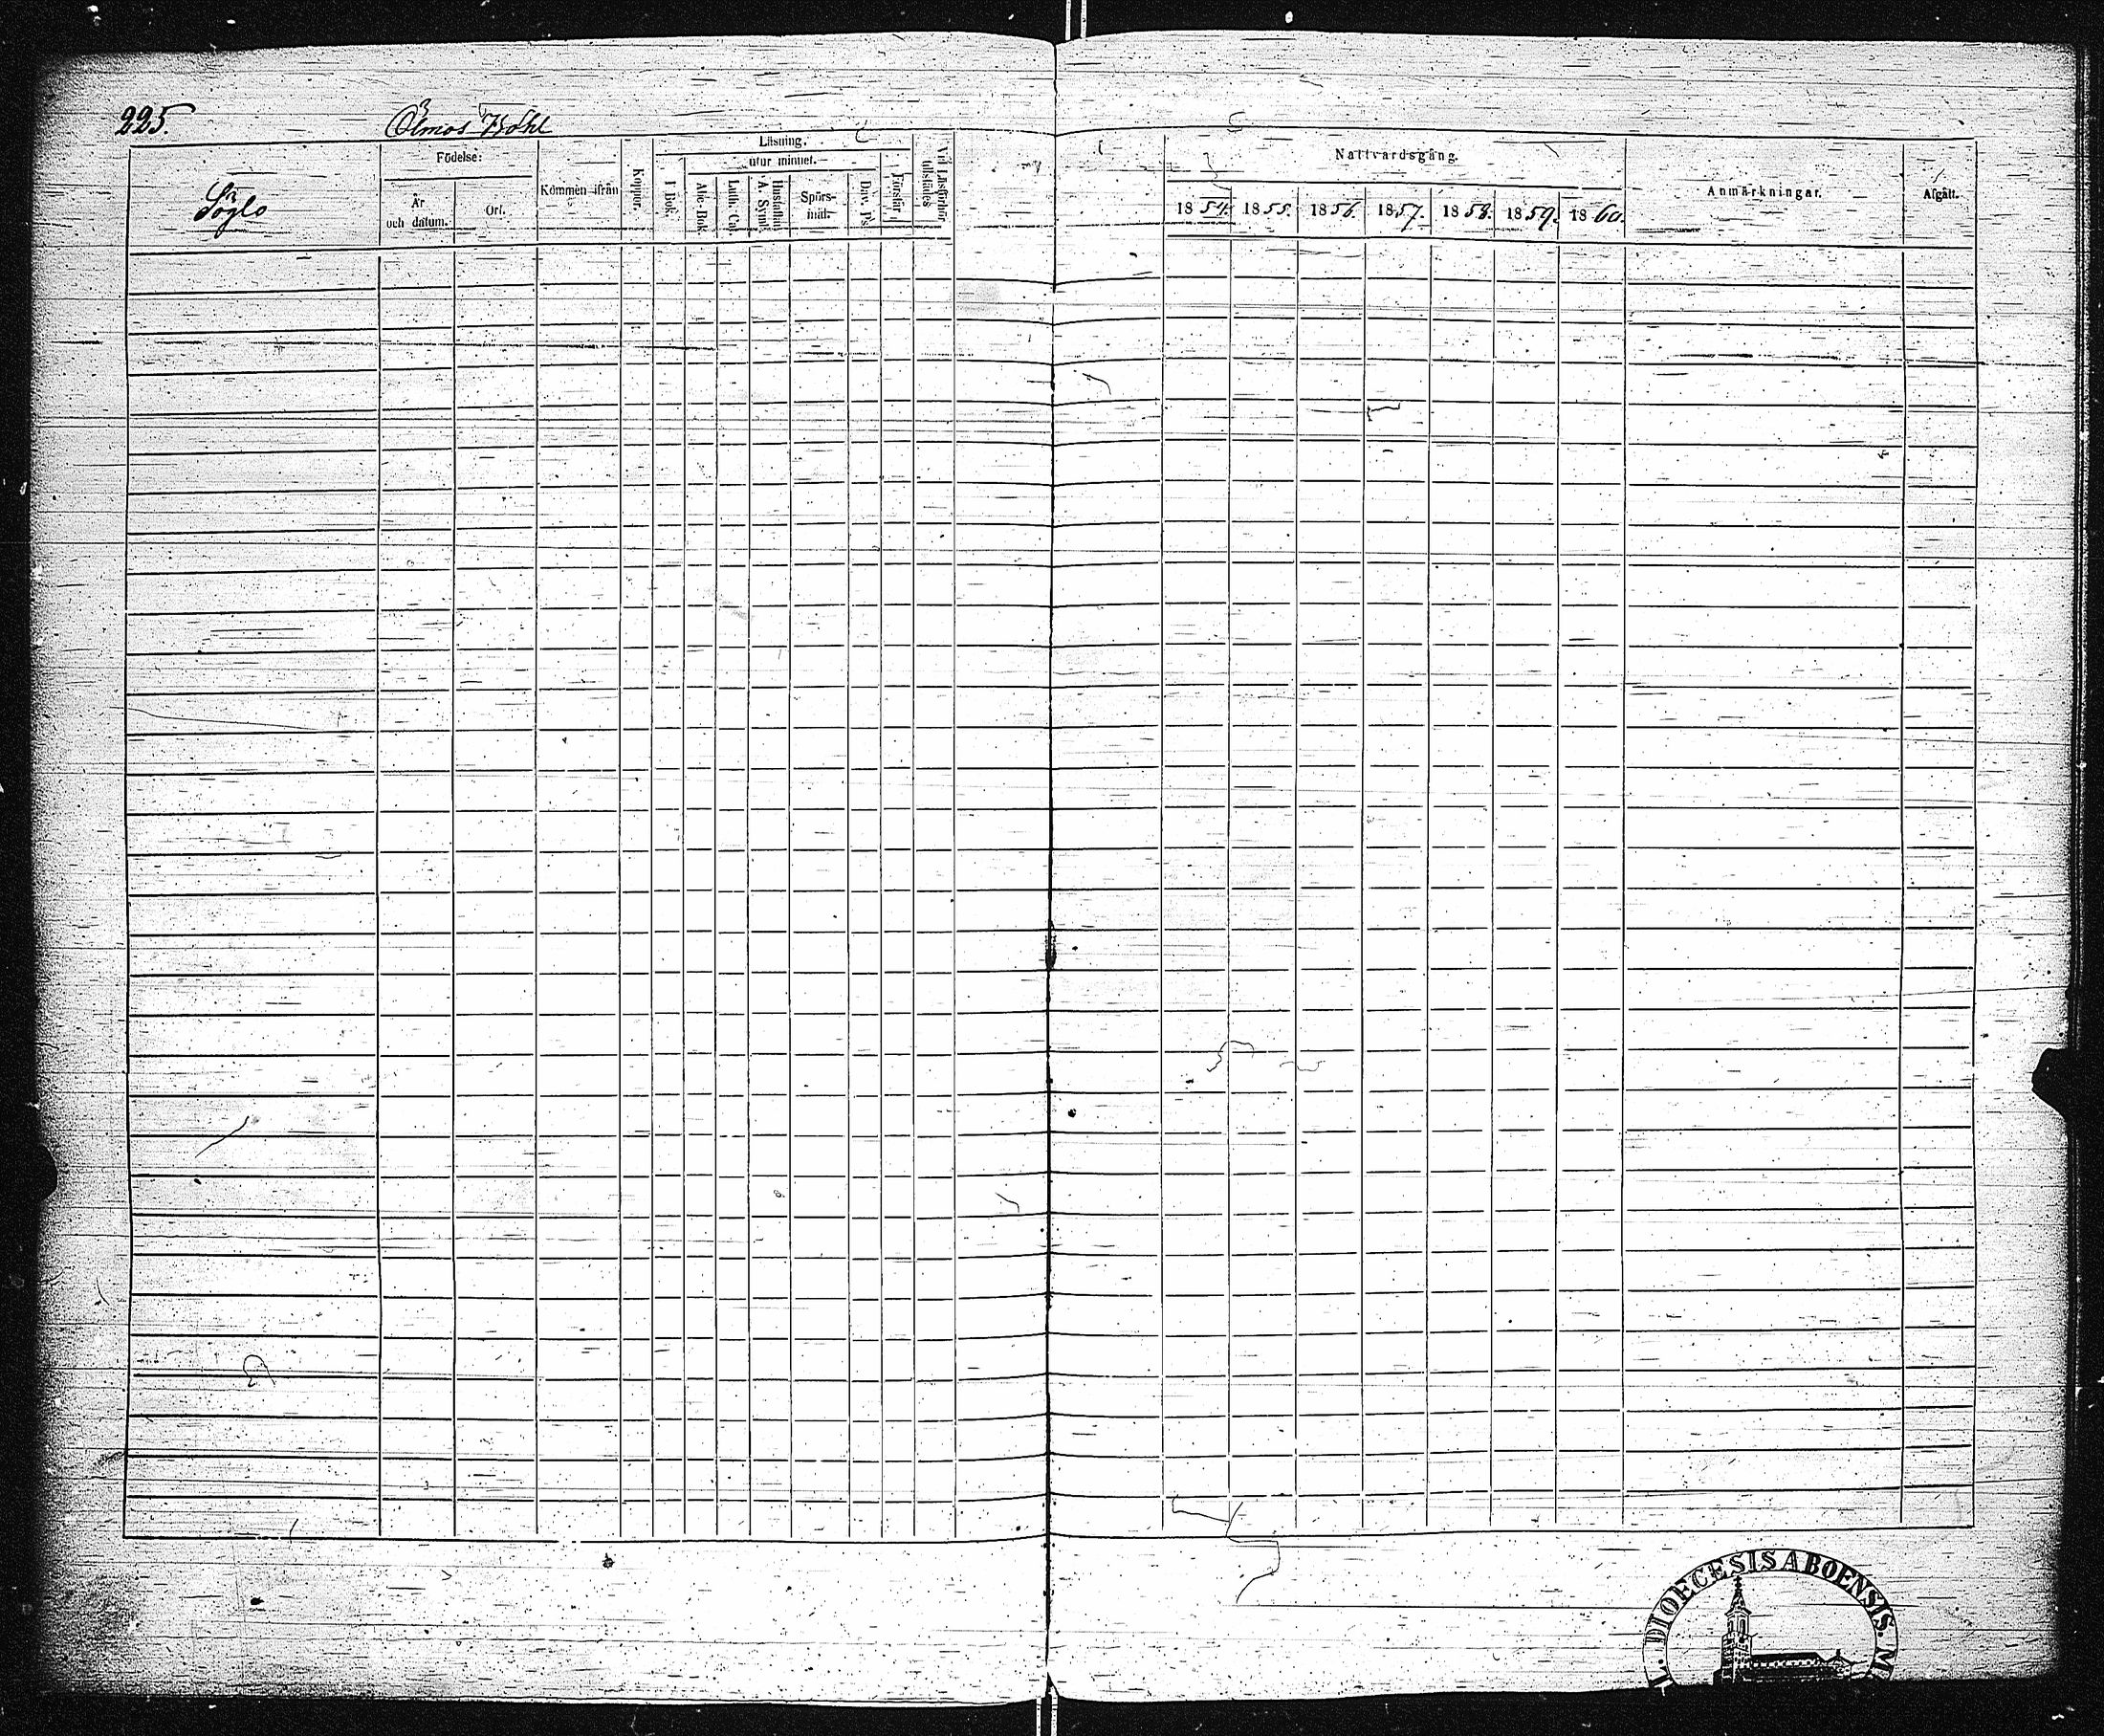 225.
Ölmos
Söglö
Födelse:
År
och datum.
Ort.
Kommen ifrån
Koppor.
Läsning.
I Bok.
utur minnet.
Abc-Bok
Luth. Cat.
Hustaflan
A. Symb.
Spörs-
mål.
Dav. Ps.
Förstår
Vid Läsförhör
tillstädes
Nattvardsgång.
1854. 1855. 1856. 1857. 1858. 1859. 1860.
Anmärkningar.
Afgått.
L. DIOECESIS ABOENSIS. M